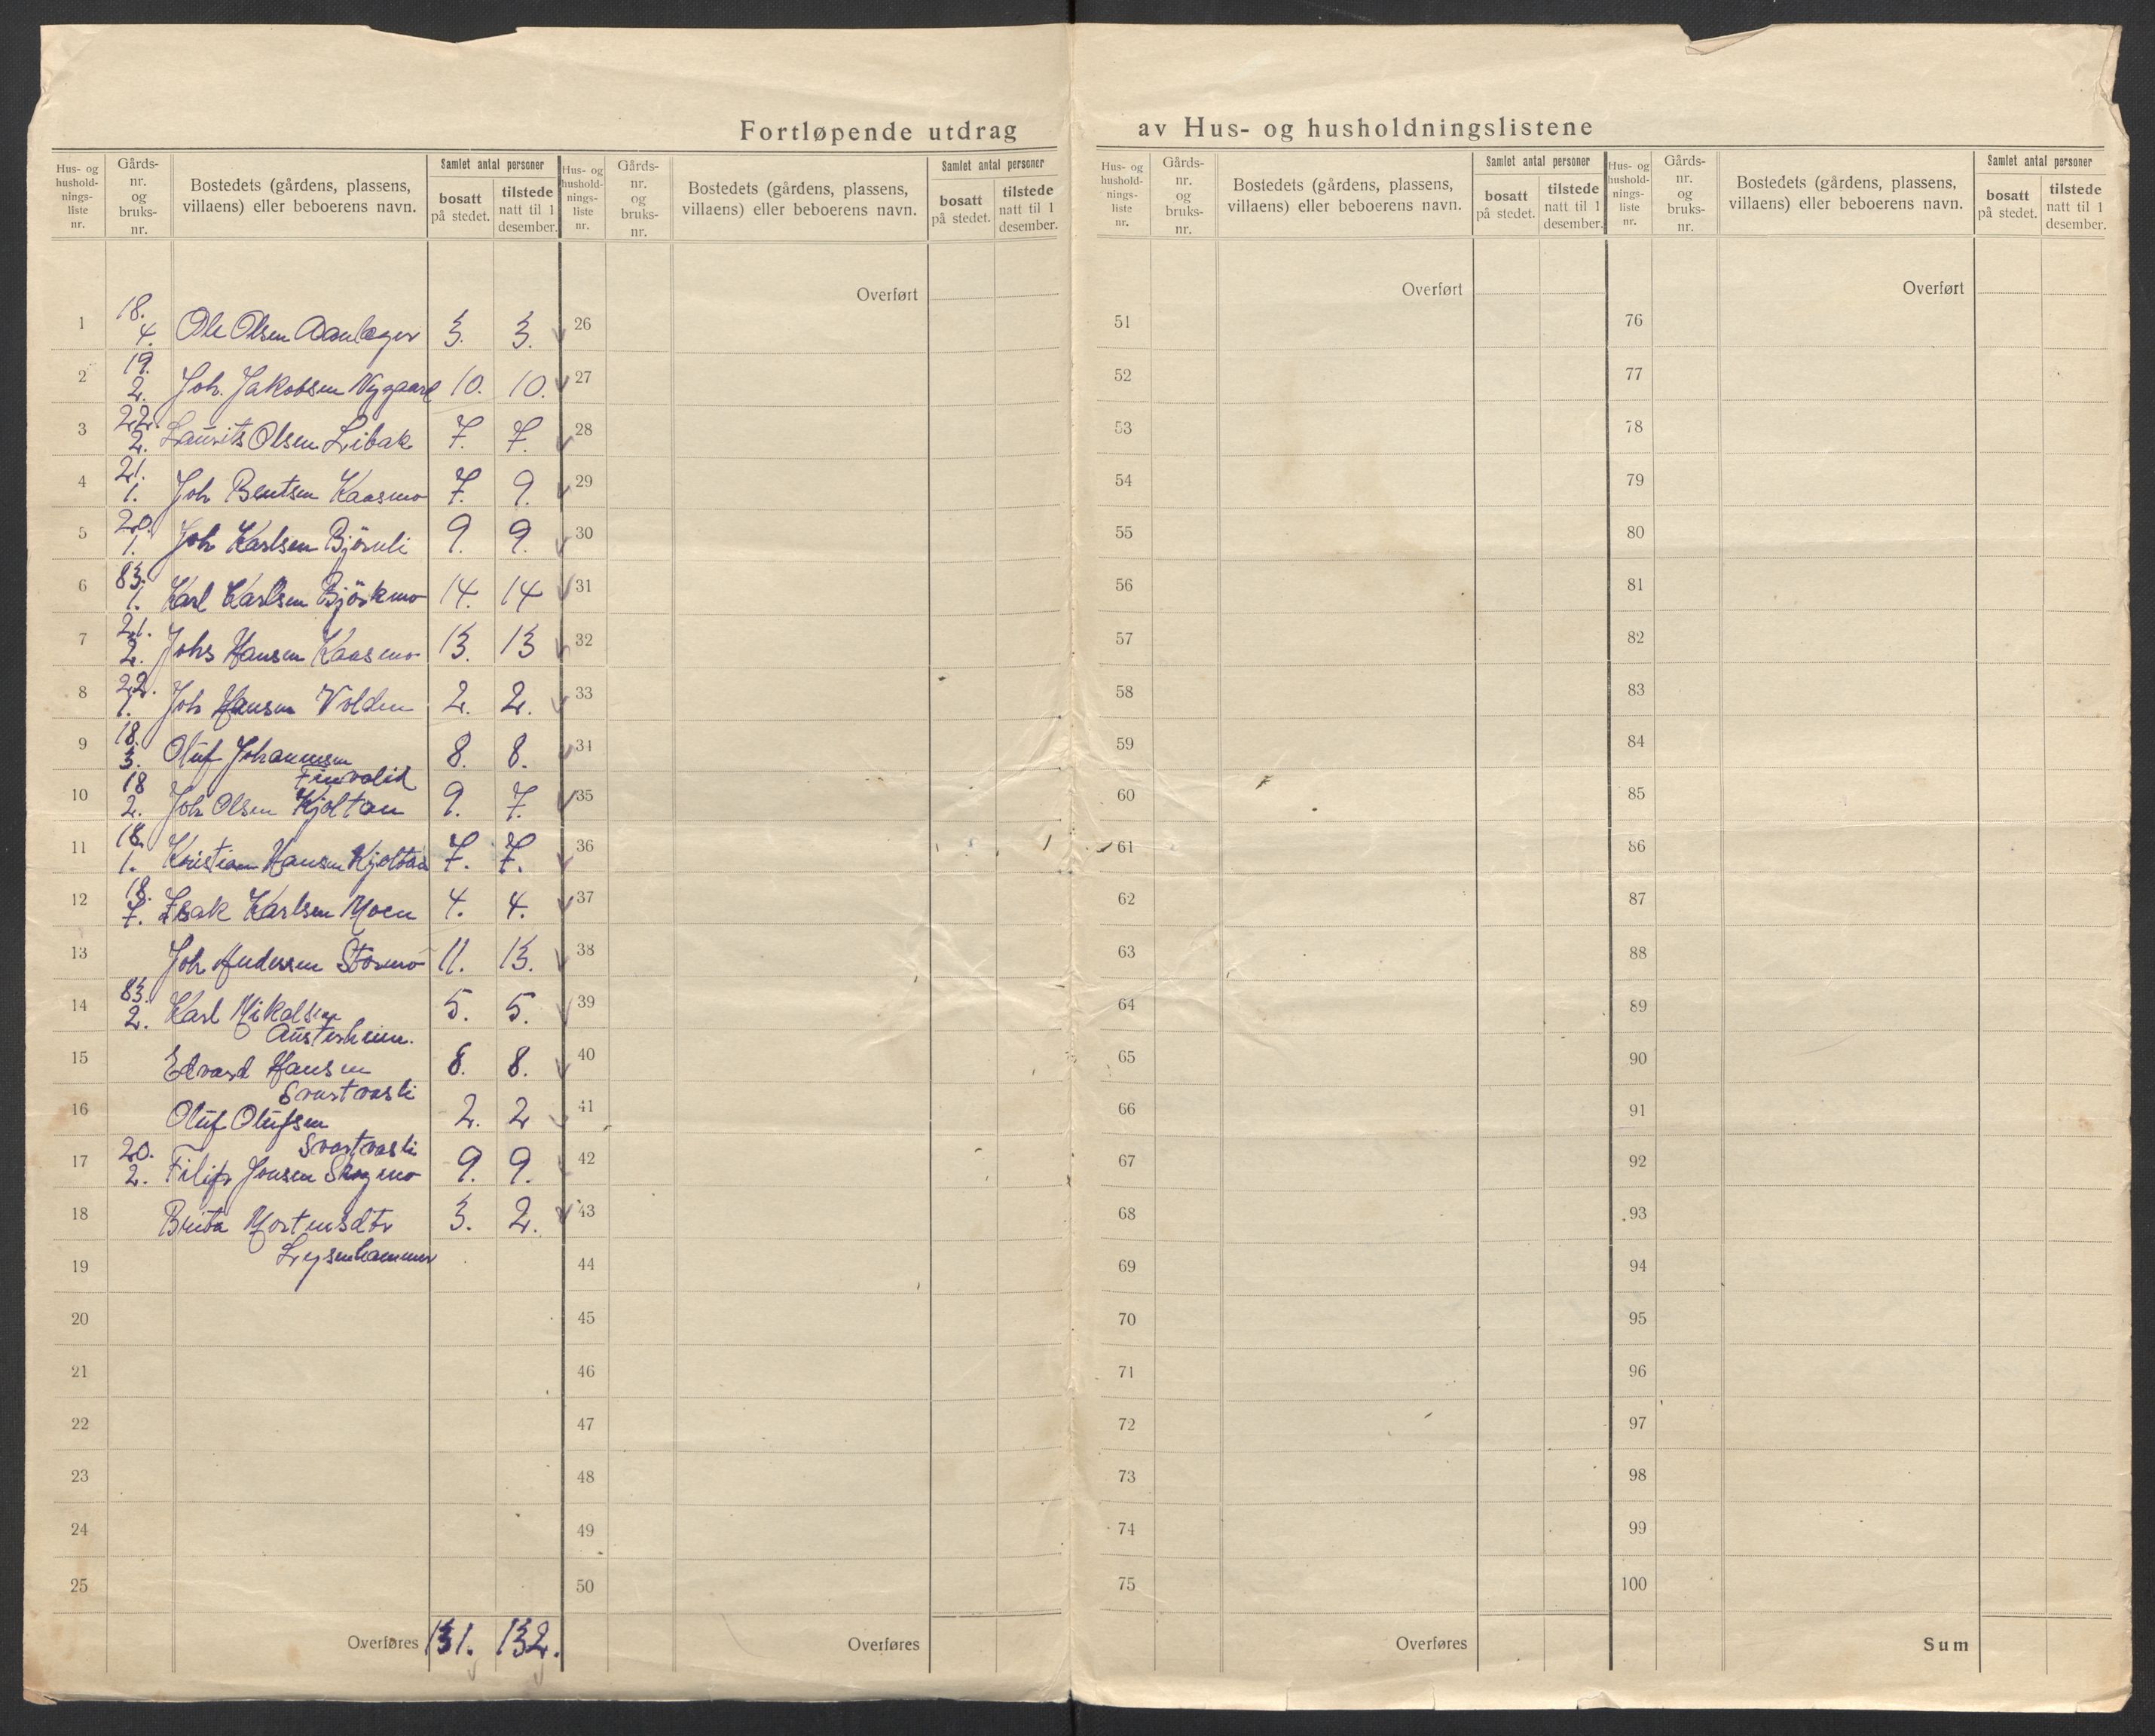 Fortløpende utdrag av Hus- og husholdningslistene
Hus- og hushold-nings-liste nr. Gårds-nr. og bruks-nr. Bostedets (gårdens, plassens, villaens) eller beboerens navn. Samlet antal personer bosatt på stedet. tilstede natt til 1 desember.
Hus- og hushold-nings-liste nr. Gårds-nr. og bruks-nr. Bostedets (gårdens, plassens, villaens) eller beboerens navn. Samlet antal personer bosatt på stedet. tilstede natt til 1 desember.
Hus- og hushold-nings-liste nr. Gårds-nr. og bruks-nr. Bostedets (gårdens, plassens, villaens) eller beboerens navn. Samlet antal personer bosatt på stedet. tilstede natt til 1 desember.
Hus- og hushold-nings-liste nr. Gårds-nr. og bruks-nr. Bostedets (gårdens, plassens, villaens) eller beboerens navn. Samlet antal personer bosatt på stedet. tilstede natt til 1 desember.
1 18. 4. Ole Olsen 3. 3.
2 19. 2. Joh. Jakobsen Nygaard 10. 10.
3 22. 2. Laurits Olsen Libak 7. 7.
4 21. 1. Joh Bentsen Kaasmo 7. 9.
5 20. 1. Joh Karlsen Björnli 9. 9.
6 83. 1. Karl Karlsen Björkmo 14. 14
7 21. 2. Johs Hansen Kaasmo 13. 13
8 22. 1. Joh Hansen Volden 2. 2.
9 18. 3. Oluf Johannesen Finvolid 8. 8.
10 18 2. Joh Olsen Kjoltan 9. 7.
11 18. 1. Kristian Hansen Kjoltan 7. 7.
12 18. 7. Isak Karlsen Moen 4. 4.
13 Joh Andersen Stormo 11. 13.
14 83. 2. Karl Mikalsen Austerheim. 5. 5.
15 Edvard Hansen Svartvasli 8. 8.
16 Oluf Olufsen Svartvasli 2. 2
17 20. 2. Filip Jonsen Skogmo 9. 9.
18 Brita Mortensdtr 3. 2.
19
20
21
22
23
24
25
Overføres 131. 132.
Overført
26
27
28
29
30
31
32
33
34
35
36
37
38
39
40
41
42
43
44
45
46
47
48
49
50
Overføres
Overført
51
52
53
54
55
56
57
58
59
60
61
62
63
64
65
66
67
68
69
70
71
72
73
74
75
Overføres
Overført
76
77
78
79
80
81
82
83
84
85
86
87
88
89
90
91
92
93
94
95
96
97
98
99
100
Sum